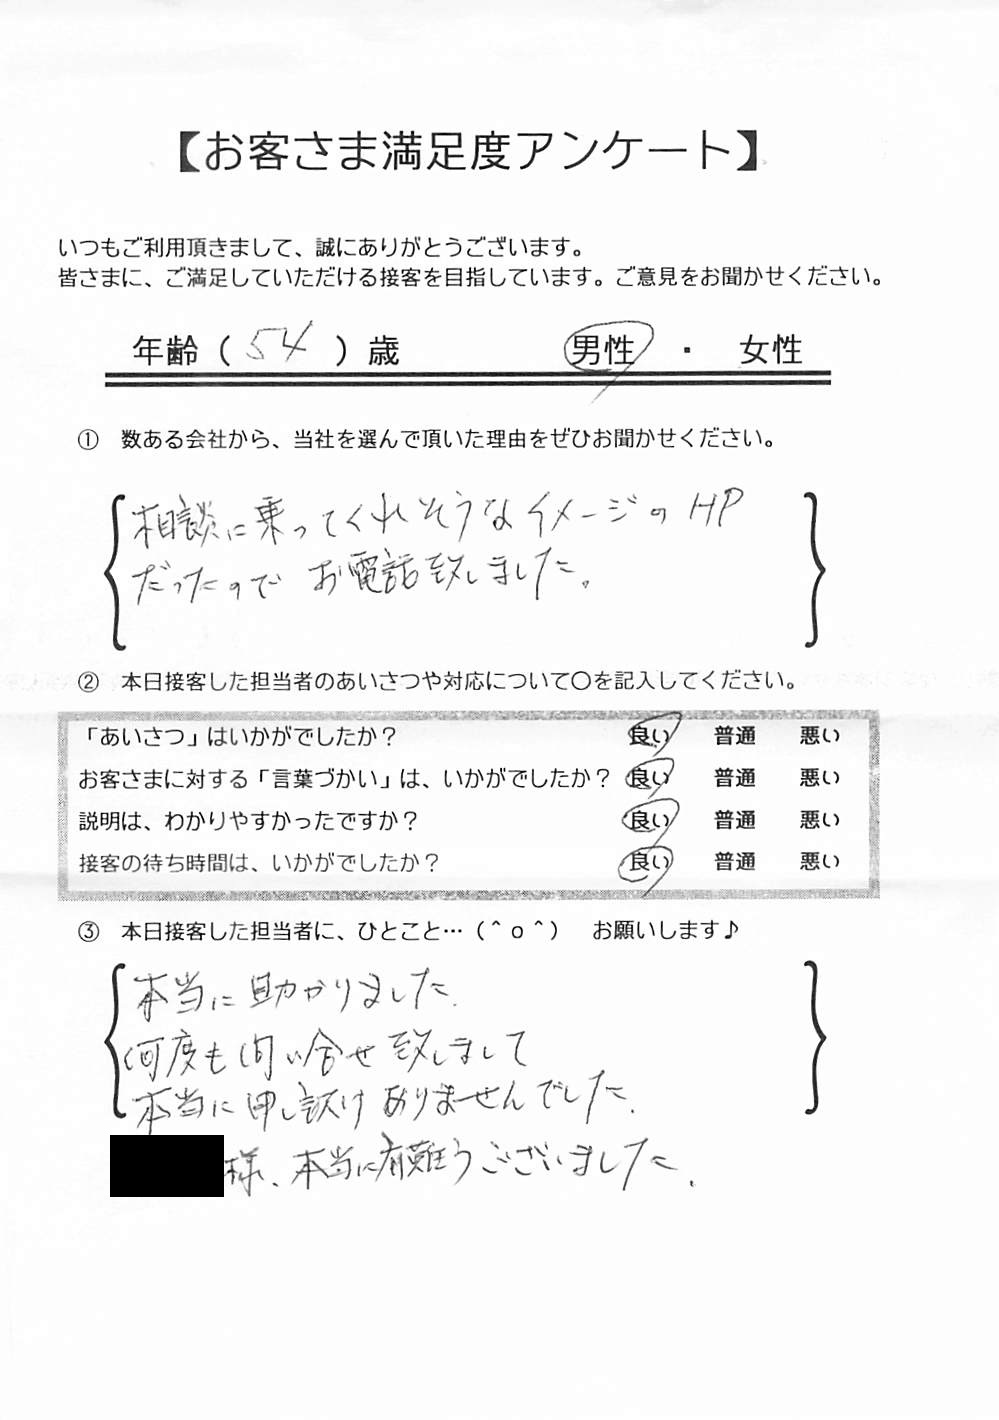 【お客さま満足度アンケート】
いつもご利用頂きまして、誠にありがとうございます。
皆さまに、ご満足していただける接客を目指しています。ご意見をお聞かせください。
年齢（ 54 ）歳　男性 ・ 女性
① 数ある会社から、当社を選んで頂いた理由をぜひお聞かせください。
相談に乗ってくれそうなイメージのHP
だったので お電話致しました。
② 本日接客した担当者のあいさつや対応について〇を記入してください。
「あいさつ」はいかがでしたか？　良い　普通　悪い
お客さまに対する「言葉づかい」は、いかがでしたか？　良い　普通　悪い
説明は、わかりやすかったですか？　良い　普通　悪い
接客の待ち時間は、いかがでしたか？　良い　普通　悪い
③ 本日接客した担当者に、ひとこと…（＾ｏ＾）　お願いします♪
本当に助かりました.
何度も問い合せ致しまして
本当に申し訳けありませんでした.
様、本当に有難うございました.